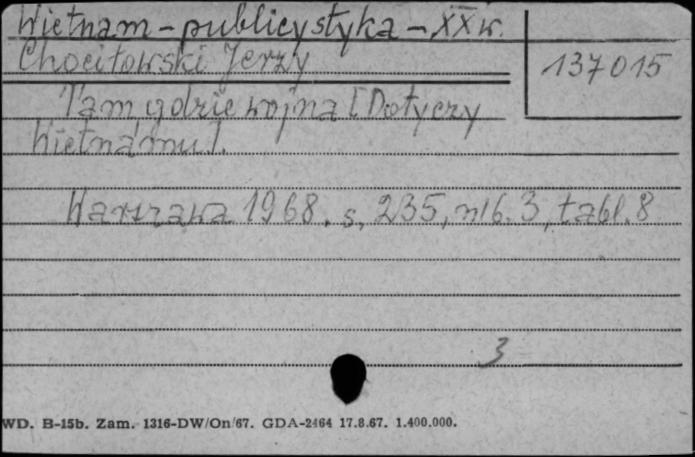 Wietnam - publicystyka - XX w.
Chociłowski Jerzy
137015
Tam, gdzie wojna [Dotyczy
Wietnamu].
Warszawa 1968. s. 235, nlb. 3, tabl. 8
3
WD. B-15b. Zam. 1316-DW/On/67. GDA-2464 17.8.67. 1.400.000.